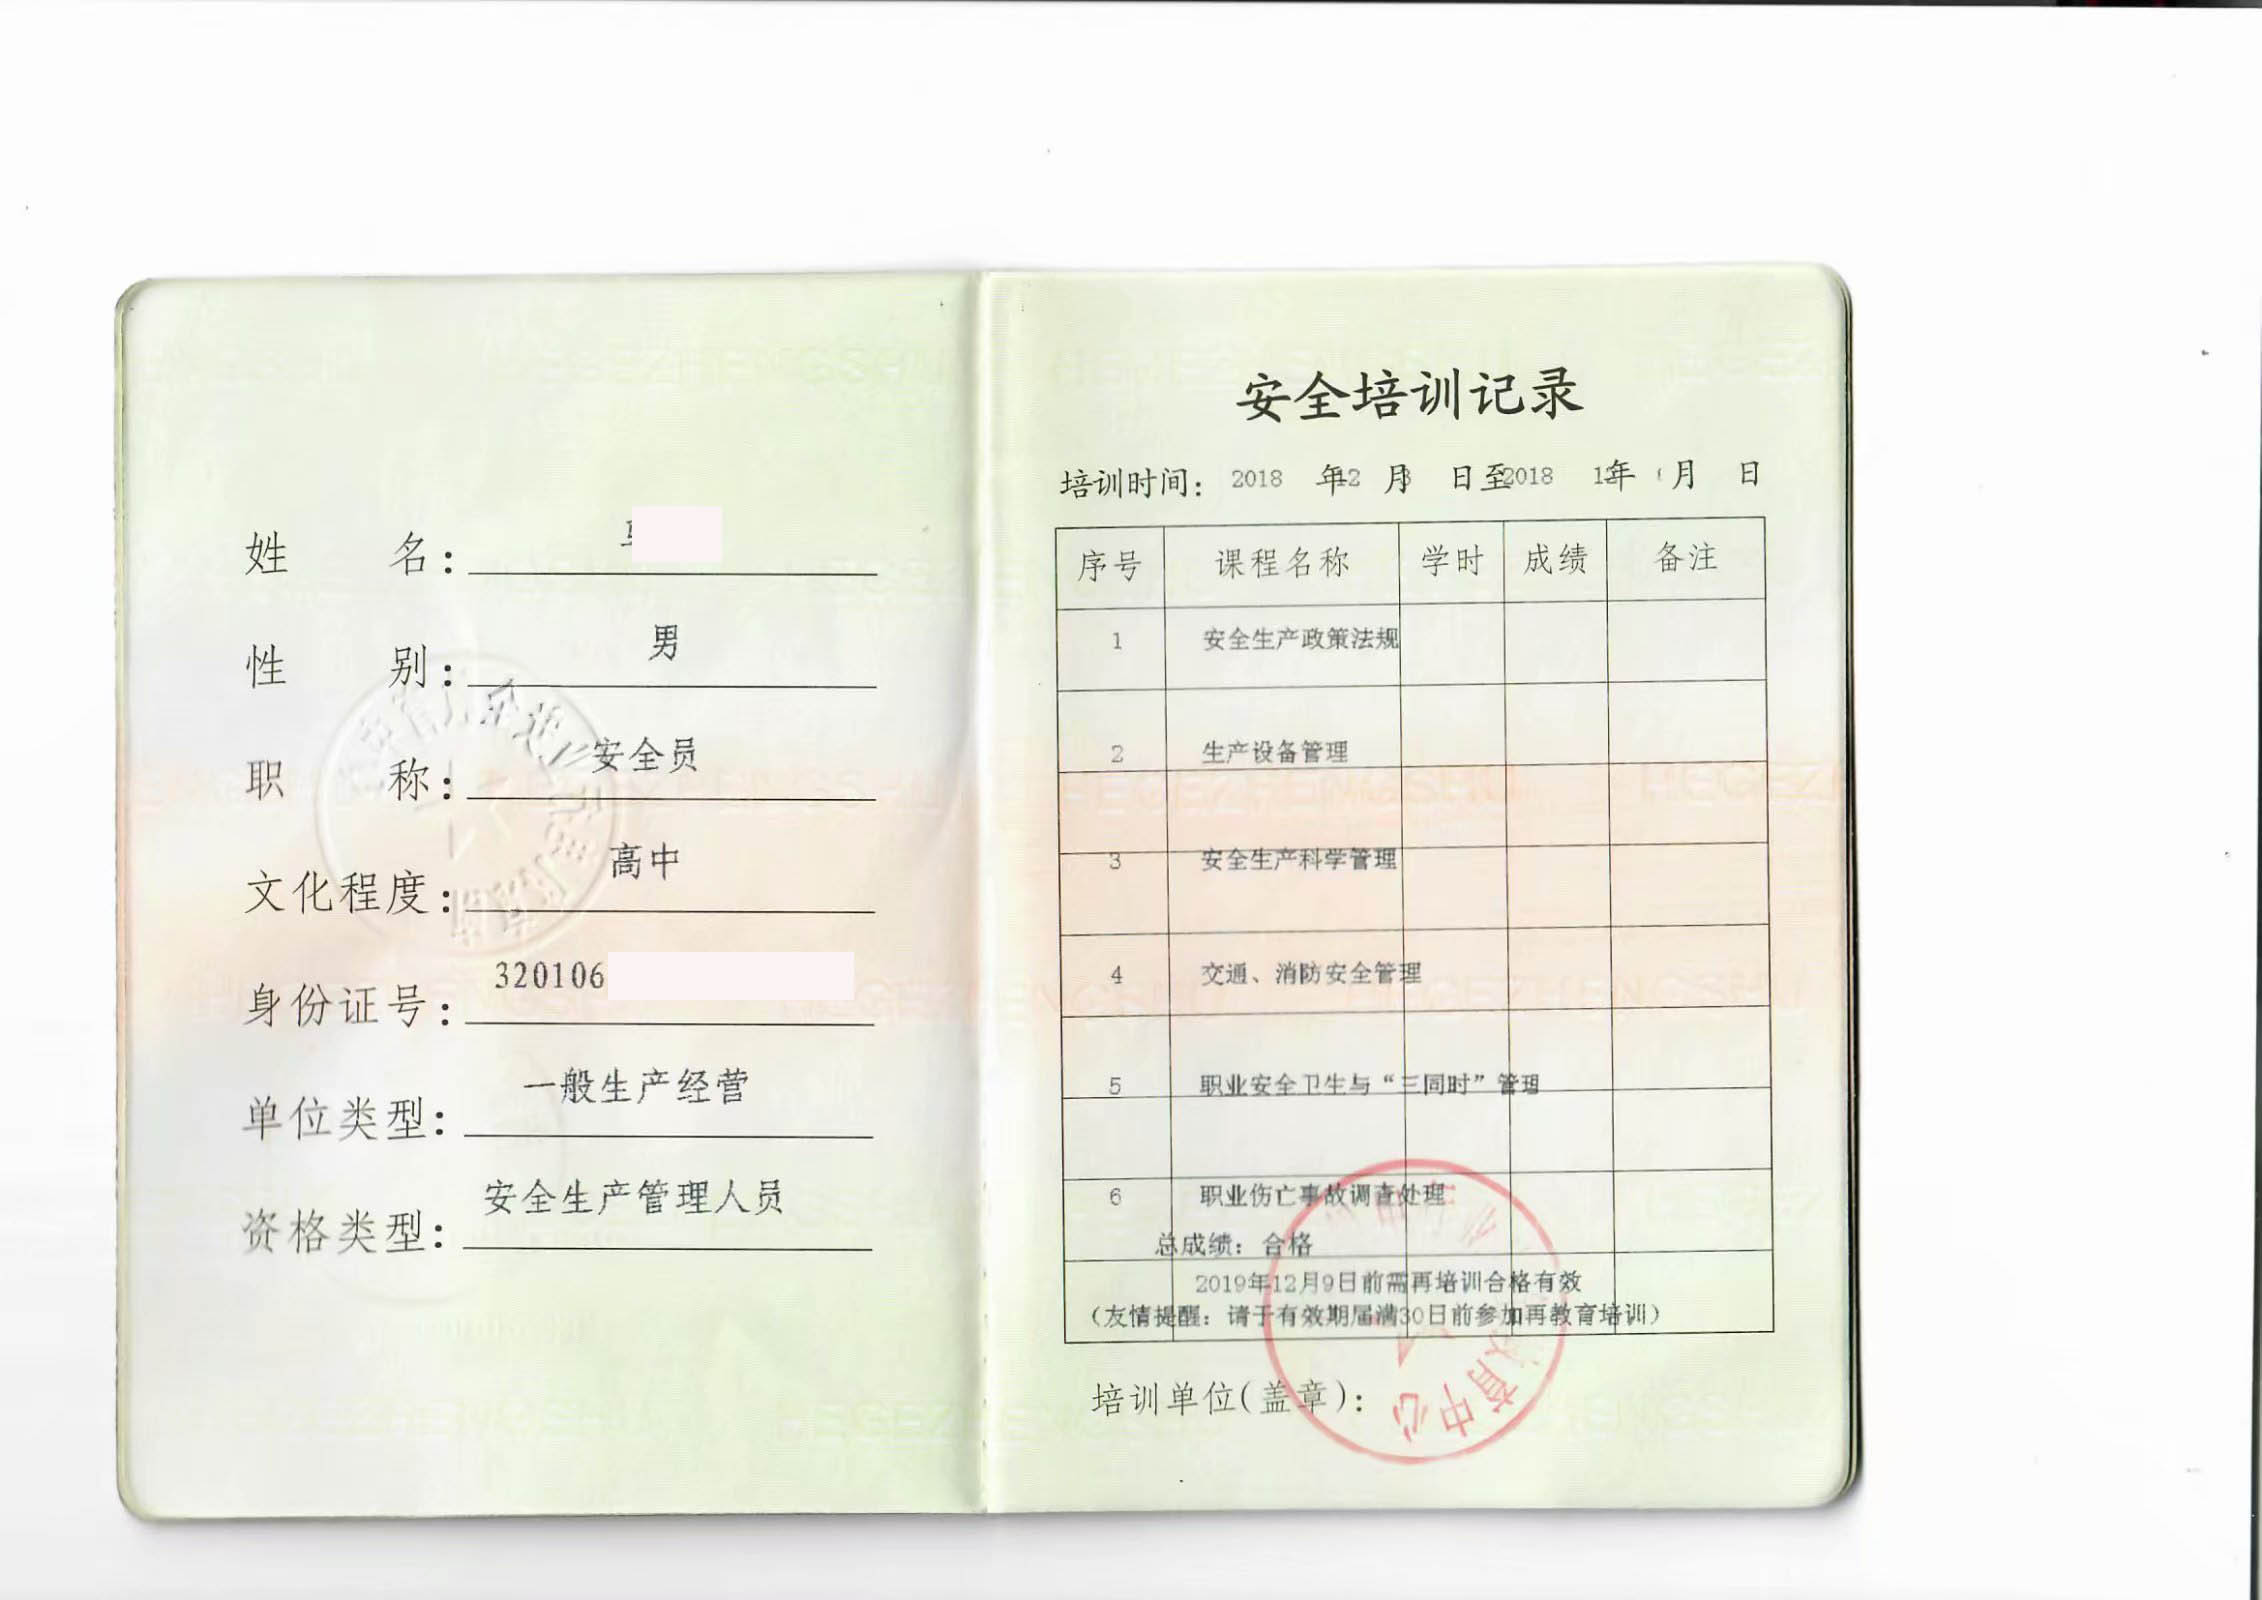 姓 名：
性 别：男
职 称：安全员
文化程度：高中
身份证号：320106
单位类型：一般生产经营
资格类型：安全生产管理人员
安全培训记录
培训时间：2018 年12 月3 日至2018 12年 月 日
序号 课程名称 学时 成绩 备注
1 安全生产政策法规
2 生产设备管理
3 安全生产科学管理
4 交通、消防安全管理
5 职业安全卫生与“三同时”管理
6 职业伤亡事故调查处理
总成绩：合格
2019年12月9日前需再培训合格有效
（友情提醒：请于有效期届满30日前参加再教育培训）
培训单位(盖章)：
育中心